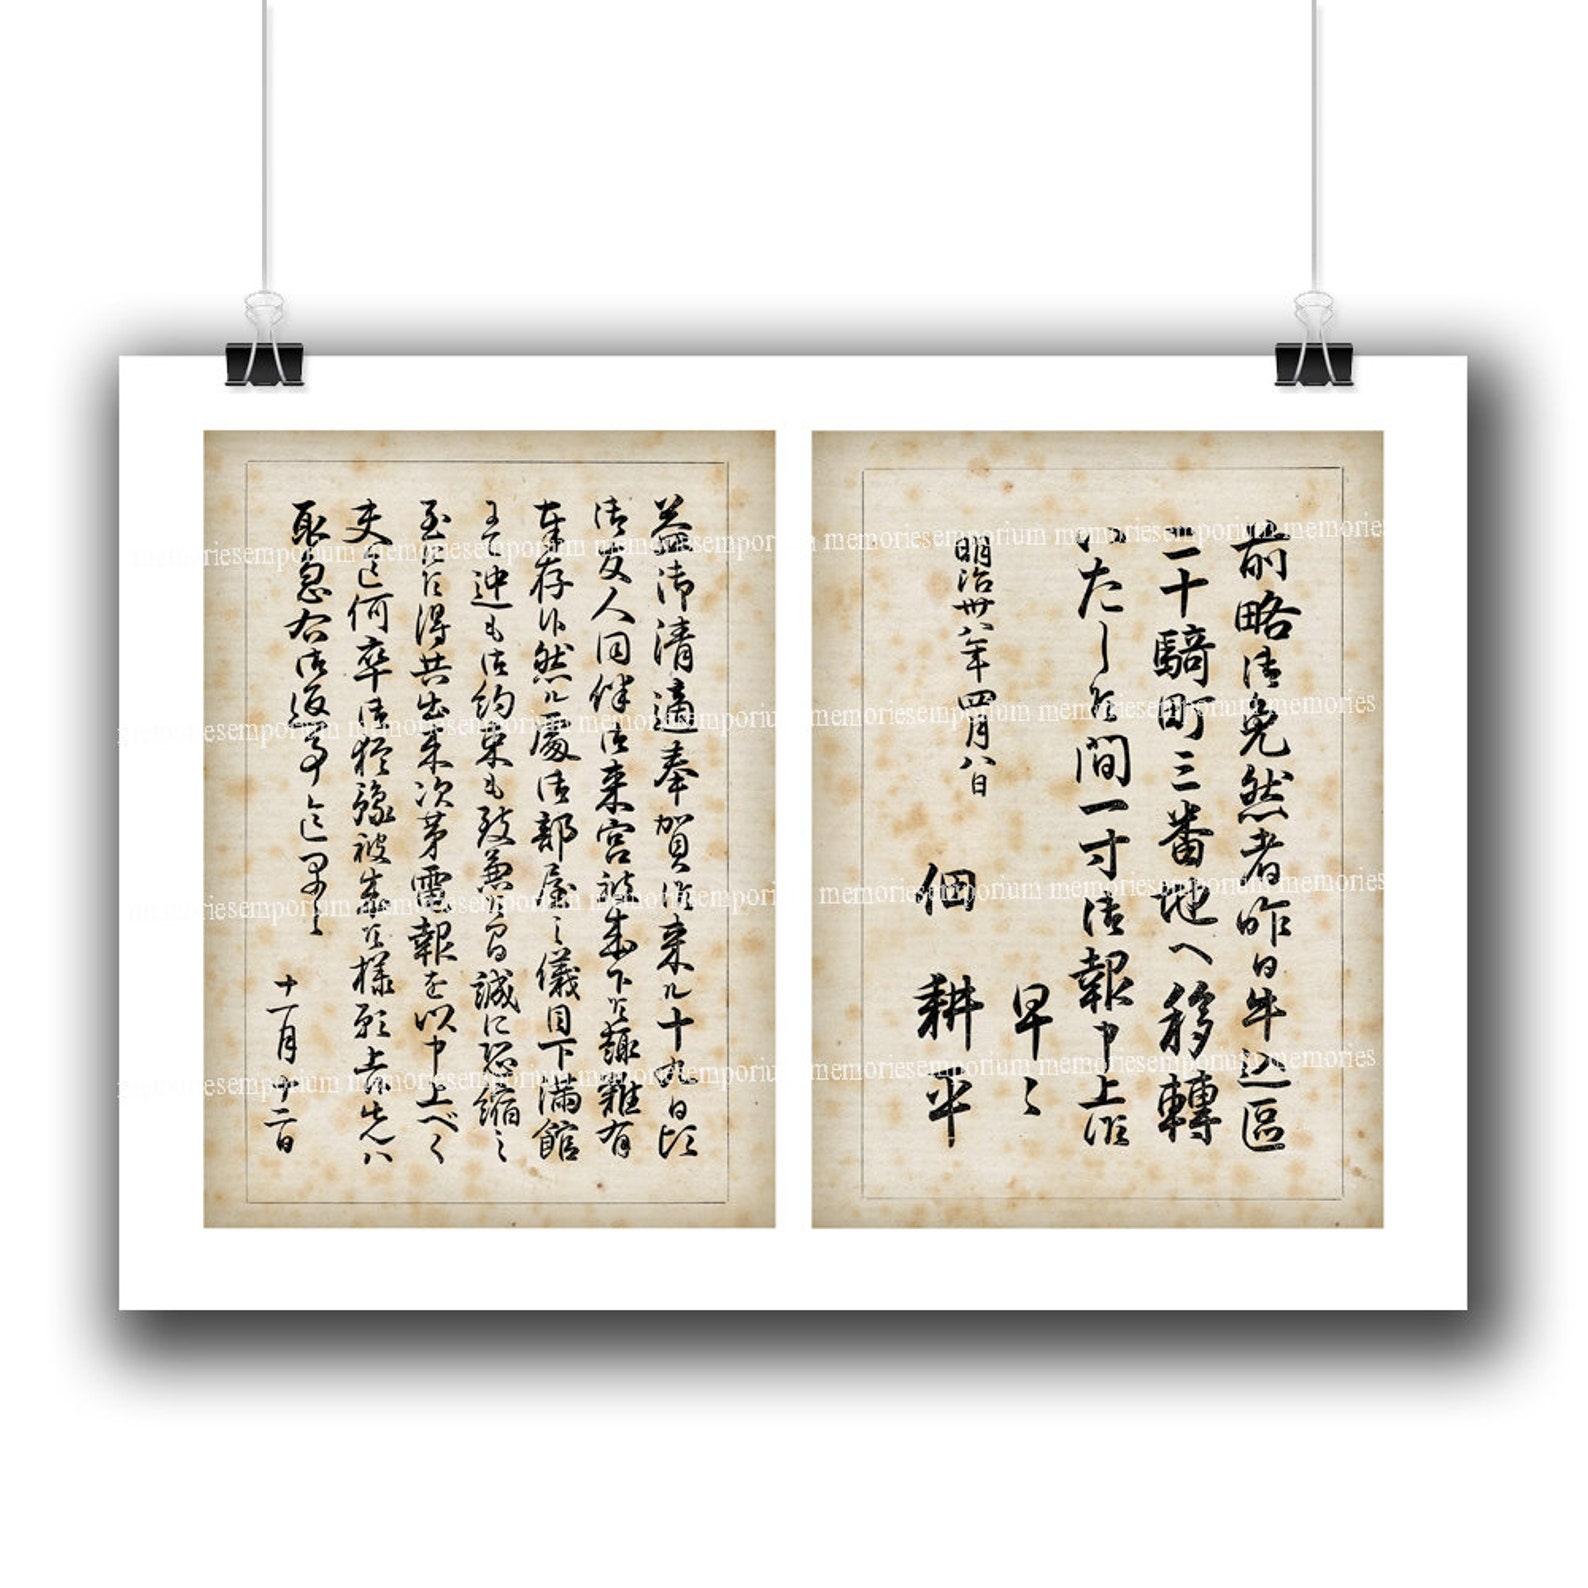 前略御免然者昨日牛込區
二十騎町三番地へ移轉
いたし候間一寸御報申上候
早々
明治卅八年四月八日
佃 耕平
益御清適奉賀候来ル十九日頃
御友人同伴御来宮被成下候趣難有
奉存候然ル處御部屋之儀目下満館
にて迚も御約束も致兼候間誠に恐縮之
至に候得共出来次第電報を以申上べく
夫迄何卒御猶豫被成候様願上候先ハ
取急右御返事迄早々
十一月十二日
memoriesemporium memoriesemporium memoriesemporium memoriesemporium memories
memoriesemporium memoriesemporium memoriesemporium memoriesemporium memories
memoriesemporium memoriesemporium memoriesemporium memoriesemporium memories
memoriesemporium memoriesemporium memoriesemporium memoriesemporium memories